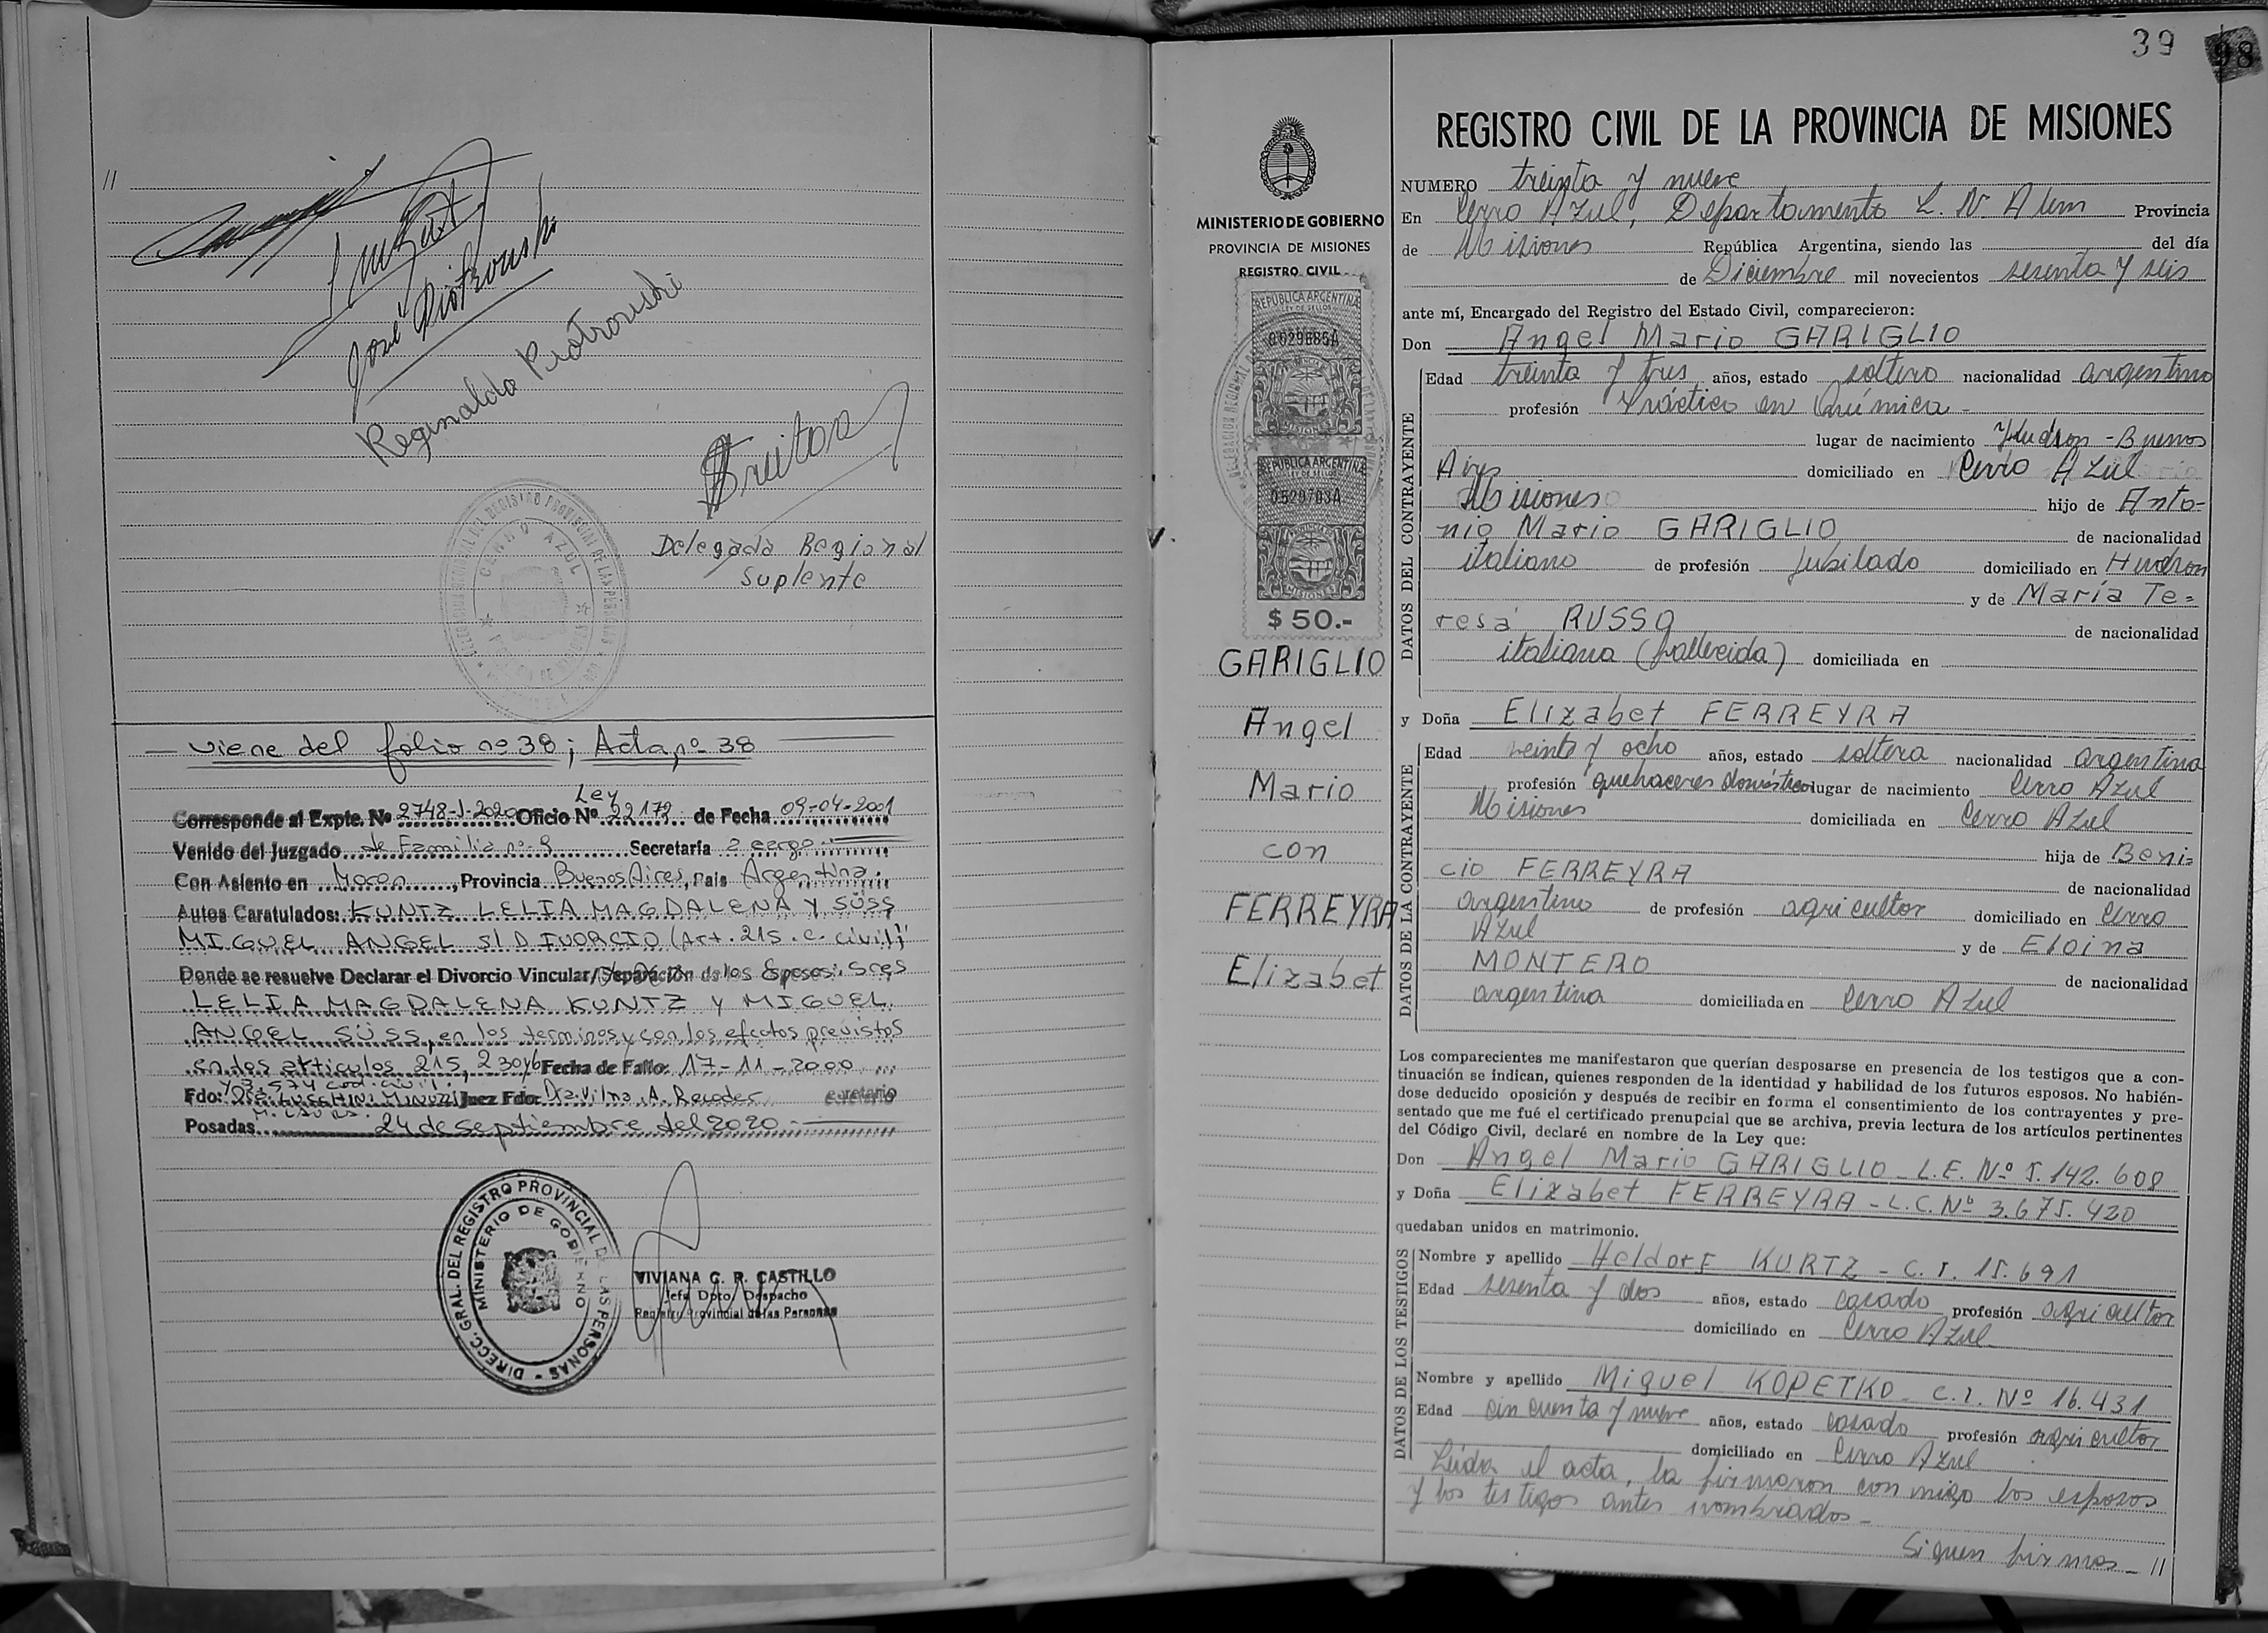 //
José Piotrouski
Reginaldo Piotrouski
Delegada Regional
Suplente
CERRO AZUL
— viene del folio nº 38; Acta nº 38
Ley
Corresponde al Expte. Nº 2748-J-2020 Oficio Nº 22172 de Fecha 09-04-2001
Venido del Juzgado de Familia nº 9 Secretaría a cargo
Con Asiento en Moron, Provincia Buenos Aires, Pais Argentina.
Autos Caratulados: KUNTZ LELIA MAGDALENA Y SÜSS
MIGUEL ANGEL S/DIVORCIO (Art. 215. C. Civil)
Donde se resuelve Declarar el Divorcio Vincular/Separación de los Esposos: Sres
LELIA MAGDALENA KUNTZ y MIGUEL
ANGEL SÜSS, en los terminos y con los efectos previstos
en los articulos 215, 230 y 6 Fecha de Fallo: 17-11-2000
Cod. Civil.
Fdo: Juez Fdo: Vilma A. Recoder
M. LAURA.
Posadas 24 de septiembre del 2020
DIRECC. GRAL. DEL REGISTRO PROVINCIAL DE LAS PERSONAS
MINISTERIO DE GOBIERNO
VIVIANA G. R. CASTILLO
Jefa Dpto. Despacho
Registro Provincial de las Personas
39
98
MINISTERIO DE GOBIERNO
PROVINCIA DE MISIONES
REGISTRO CIVIL
REPUBLICA ARGENTINA
LEY DE SELLOS
MISIONES
REPUBLICA ARGENTINA
LEY DE SELLOS
0529703A
MISIONES
$ 50.-
GARIGLIO
Angel
Mario
con
FERREYRA
Elizabet
REGISTRO CIVIL DE LA PROVINCIA DE MISIONES
NUMERO treinta y nueve
En Cerro Azul, Departamento L. N. Alem Provincia
de Misiones República Argentina, siendo las del día
de Diciembre mil novecientos sesenta y seis
ante mí, Encargado del Registro del Estado Civil, comparecieron:
Don Angel Mario GARIGLIO
DATOS DEL CONTRAYENTE
Edad treinta y tres años, estado soltero nacionalidad argentino
profesión Práctico en Química -
lugar de nacimiento Hudson - Buenos
Aires domiciliado en Cerro Azul
Misiones hijo de Anto-
nio Mario GARIGLIO de nacionalidad
italiano de profesión Jubilado domiciliado en Hudson
y de María Te=
resa RUSSO de nacionalidad
italiana (fallecida) domiciliada en
y Doña Elizabet FERREYRA
DATOS DE LA CONTRAYENTE
Edad veinte y ocho años, estado soltera nacionalidad argentina
profesión quehaceres domésticos lugar de nacimiento Cerro Azul
Misiones domiciliada en Cerro Azul
hija de Beni=
cio FERREYRA de nacionalidad
argentino de profesión agricultor domiciliado en Cerro
Azul y de Eloina
MONTERO de nacionalidad
argentina domiciliada en Cerro Azul
Los comparecientes me manifestaron que querían desposarse en presencia de los testigos que a con-
tinuación se indican, quienes responden de la identidad y habilidad de los futuros esposos. No habién-
dose deducido oposición y después de recibir en forma el consentimiento de los contrayentes y pre-
sentado que me fué el certificado prenupcial que se archiva, previa lectura de los artículos pertinentes
del Código Civil, declaré en nombre de la Ley que:
Don Angel Mario GARIGLIO - L.E. Nº 5.142.608
y Doña Elizabet FERREYRA - L.C. Nº 3.675.420
quedaban unidos en matrimonio.
DATOS DE LOS TESTIGOS
Nombre y apellido Heldorf KURTZ - C.I. 15.691
Edad sesenta y dos años, estado casado profesión agricultor
domiciliado en Cerro Azul
Nombre y apellido Miguel KOPETKO - C.I. Nº 16.431
Edad cincuenta y nueve años, estado casado profesión agricultor
domiciliado en Cerro Azul
Leída el acta, la firmaron conmigo los esposos
y los testigos antes nombrados -
Siguen firmas - //